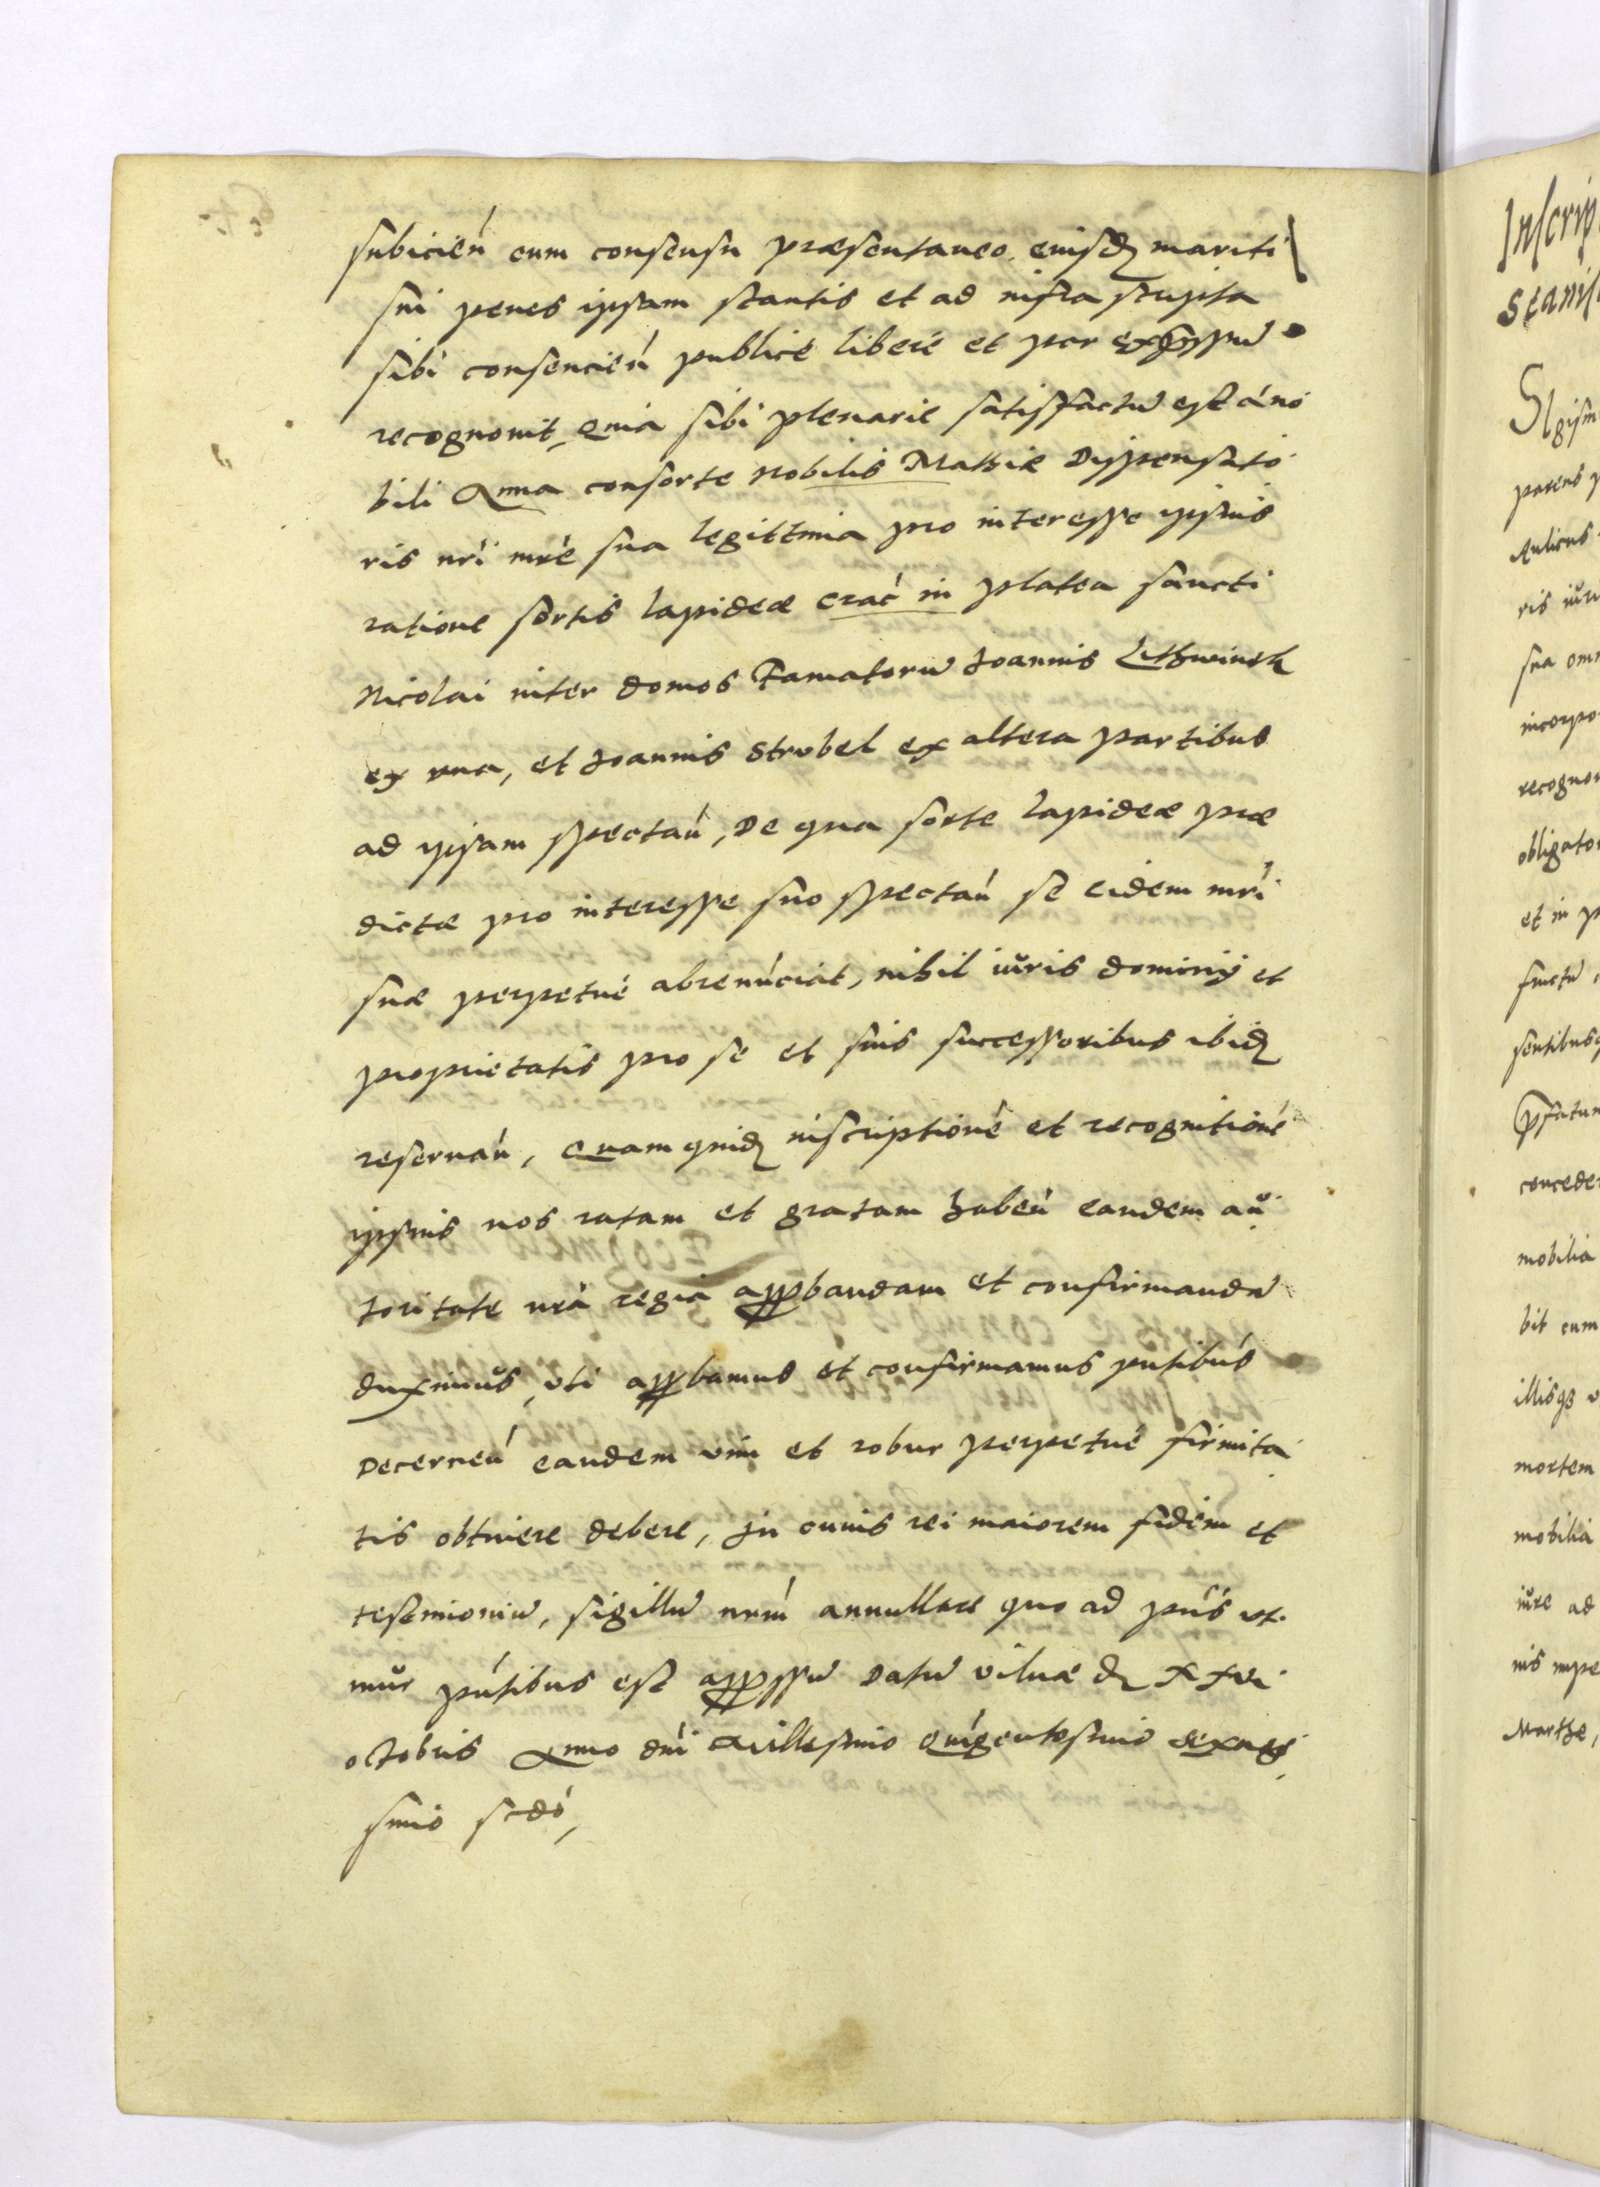 subicien cum consensu præsentaneo eiusd mariti
sui penes ipsam stantis et ad infra scripta
sibi consencien publice libere et per expressu
recognouit, Quia sibi plenarie satisfactu est a no
bili Anna consorte Nobilis Mathiæ Dispensato
ris nri mre sua legittima pro interesse ipsius
ratione sortis lapideæ crac in platea sancti
Nicolai inter domos Famatoru Joannis Lithwinek
ex vna, et Joannis Strobel ex altera partibus
ad ipsam spectan, De qua sorte lapideæ præ
dictæ pro interesse suo spectan se eidem mri
suæ perpetue abrenunciat, nihil iuris dominij et
proprietatis pro se et suis successoribus ibid
reseruan, Quam quid inscriptione et recognitione
ipsius nos ratam et gratam haben eandem au
toritate nra regia approbandam et confirmanda
duximus, vti approbamus et confirmamus pntibus
Decernen eandem vim et robur perpetue firmita
tis obtinere debere, In cuius rei maiorem fidem et
testimoniu, sigillu nrm annullare quo ad pns vti
mur pntibus est appressu Datu vilnæ d xxvi
octobris Anno dni Millesimo Quingentesimo sexage
simo scdo,
Inscrip
stanis
Sigism
parens
Aulicus
ris
sua omn
incorpo
recogno
obligato
et in p
fructu
sentibusq
pfatum
concede
mobilia
bit cum
illisq
mortem
mobilia
iure ad
nis impe
Marthe,